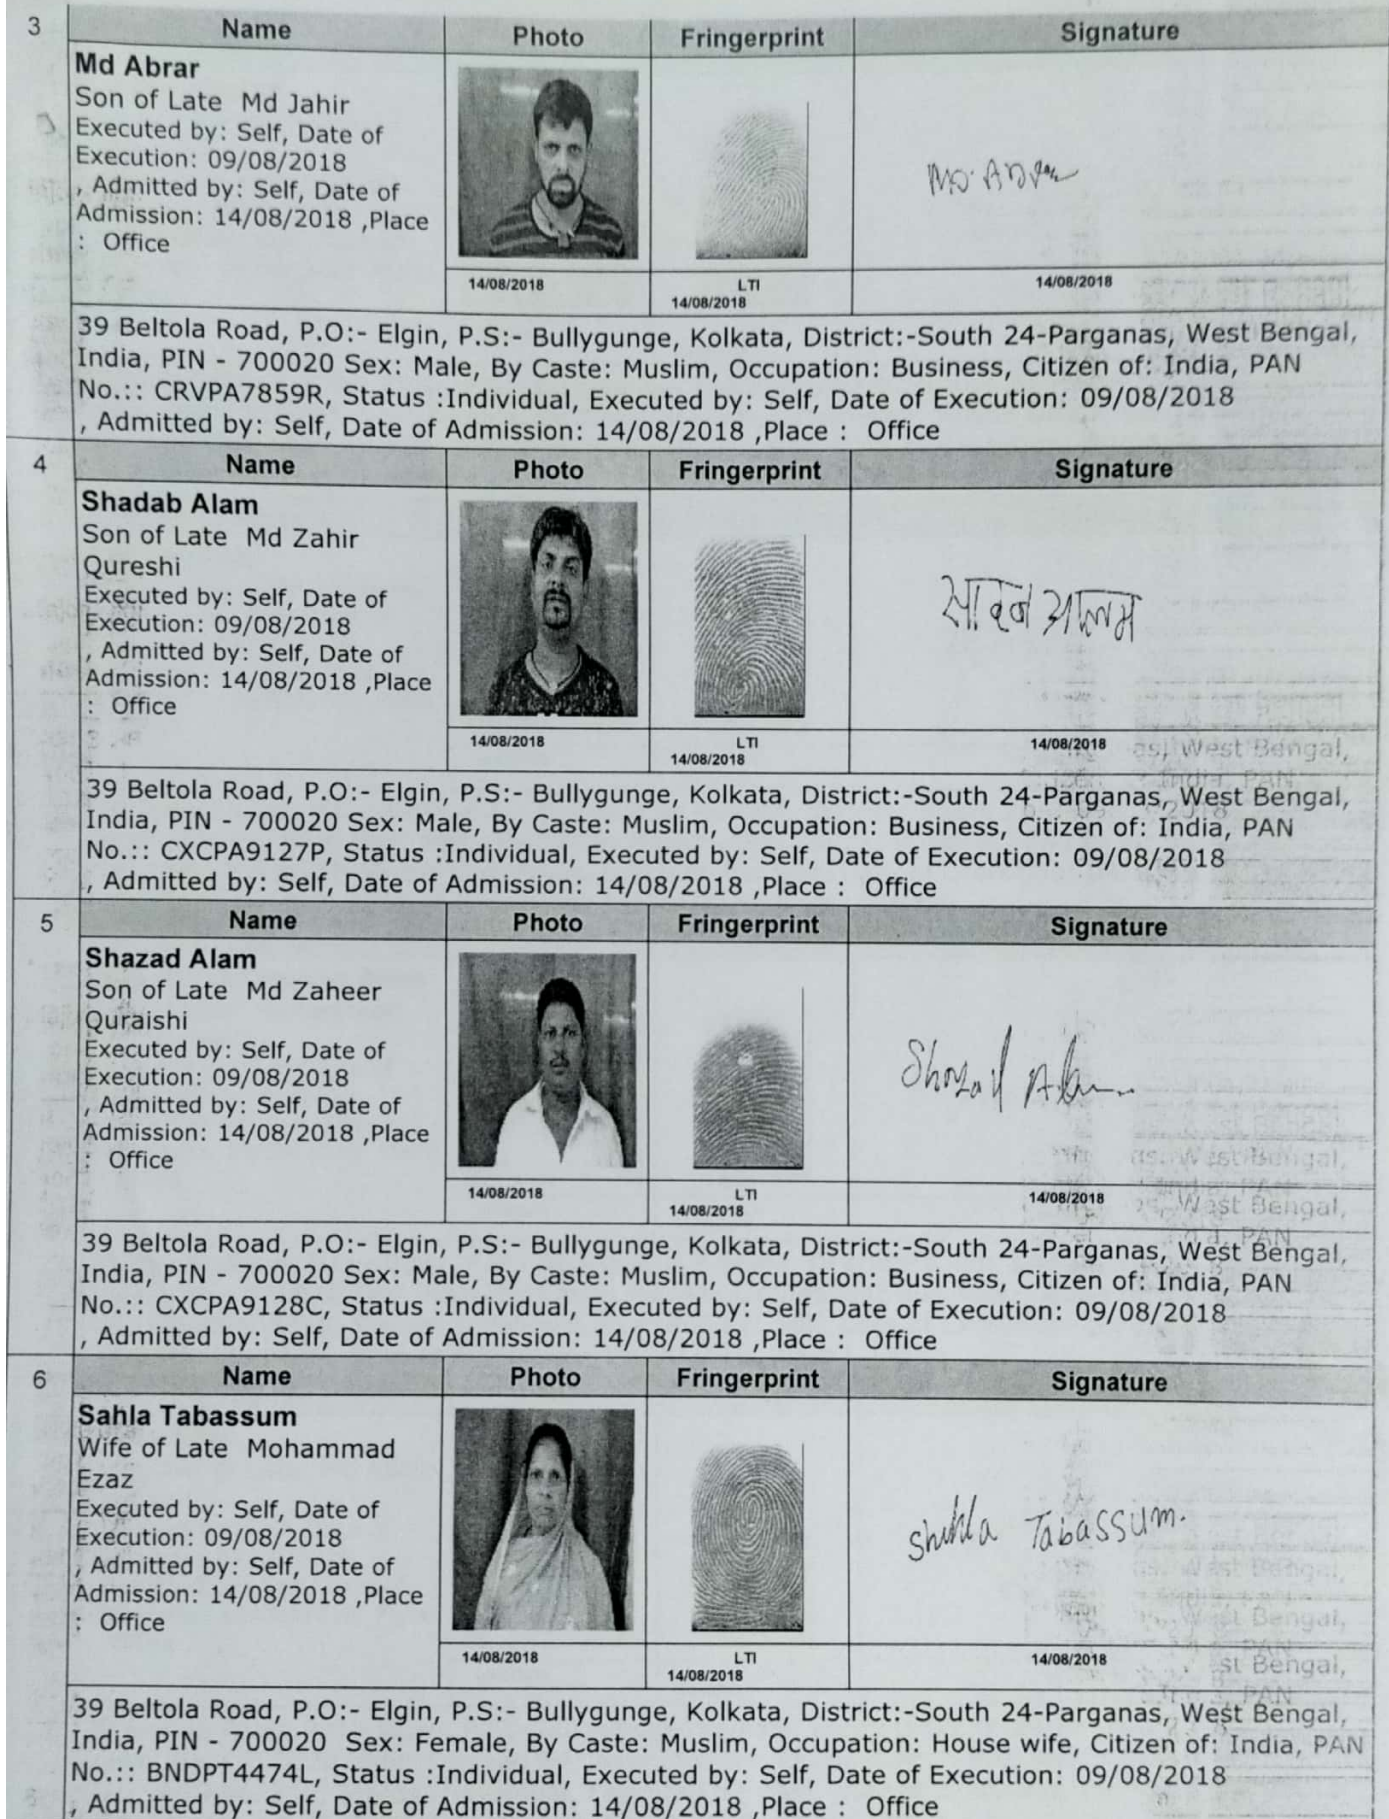 3
Name Photo Fringerprint Signature
Md Abrar
Son of Late Md Jahir
Executed by: Self, Date of
Execution: 09/08/2018
, Admitted by: Self, Date of
Admission: 14/08/2018 ,Place
: Office
MD. ABrar
14/08/2018 LTI 14/08/2018
14/08/2018
39 Beltola Road, P.O:- Elgin, P.S:- Bullygunge, Kolkata, District:-South 24-Parganas, West Bengal,
India, PIN - 700020 Sex: Male, By Caste: Muslim, Occupation: Business, Citizen of: India, PAN
No.:: CRVPA7859R, Status :Individual, Executed by: Self, Date of Execution: 09/08/2018
, Admitted by: Self, Date of Admission: 14/08/2018 ,Place : Office
4
Name Photo Fringerprint Signature
Shadab Alam
Son of Late Md Zahir
Qureshi
Executed by: Self, Date of
Execution: 09/08/2018
, Admitted by: Self, Date of
Admission: 14/08/2018 ,Place
: Office
आलम
14/08/2018 LTI 14/08/2018
14/08/2018
39 Beltola Road, P.O:- Elgin, P.S:- Bullygunge, Kolkata, District:-South 24-Parganas, West Bengal,
India, PIN - 700020 Sex: Male, By Caste: Muslim, Occupation: Business, Citizen of: India, PAN
No.:: CXCPA9127P, Status :Individual, Executed by: Self, Date of Execution: 09/08/2018
, Admitted by: Self, Date of Admission: 14/08/2018 ,Place : Office
5
Name Photo Fringerprint Signature
Shazad Alam
Son of Late Md Zaheer
Quraishi
Executed by: Self, Date of
Execution: 09/08/2018
, Admitted by: Self, Date of
Admission: 14/08/2018 ,Place
: Office
Shazad Alam
14/08/2018 LTI 14/08/2018
14/08/2018
39 Beltola Road, P.O:- Elgin, P.S:- Bullygunge, Kolkata, District:-South 24-Parganas, West Bengal,
India, PIN - 700020 Sex: Male, By Caste: Muslim, Occupation: Business, Citizen of: India, PAN
No.:: CXCPA9128C, Status :Individual, Executed by: Self, Date of Execution: 09/08/2018
, Admitted by: Self, Date of Admission: 14/08/2018 ,Place : Office
6
Name Photo Fringerprint Signature
Sahla Tabassum
Wife of Late Mohammad
Ezaz
Executed by: Self, Date of
Execution: 09/08/2018
, Admitted by: Self, Date of
Admission: 14/08/2018 ,Place
: Office
Shahla Tabassum.
14/08/2018 LTI 14/08/2018
14/08/2018
39 Beltola Road, P.O:- Elgin, P.S:- Bullygunge, Kolkata, District:-South 24-Parganas, West Bengal,
India, PIN - 700020 Sex: Female, By Caste: Muslim, Occupation: House wife, Citizen of: India, PAN
No.:: BNDPT4474L, Status :Individual, Executed by: Self, Date of Execution: 09/08/2018
, Admitted by: Self, Date of Admission: 14/08/2018 ,Place : Office